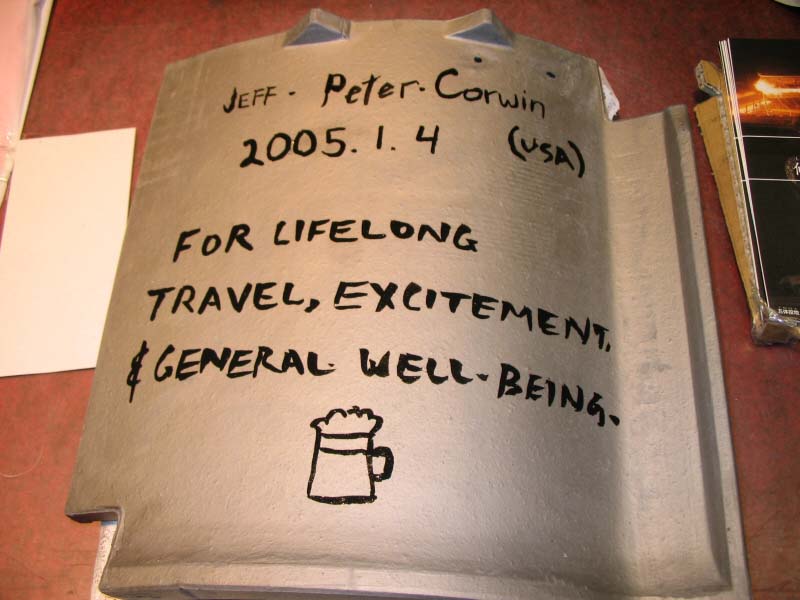 JEFF. Peter. Corwin
2005. 1. 4 (USA)
FOR LIFELONG
TRAVEL, EXCITEMENT,
& GENERAL WELL-BEING.